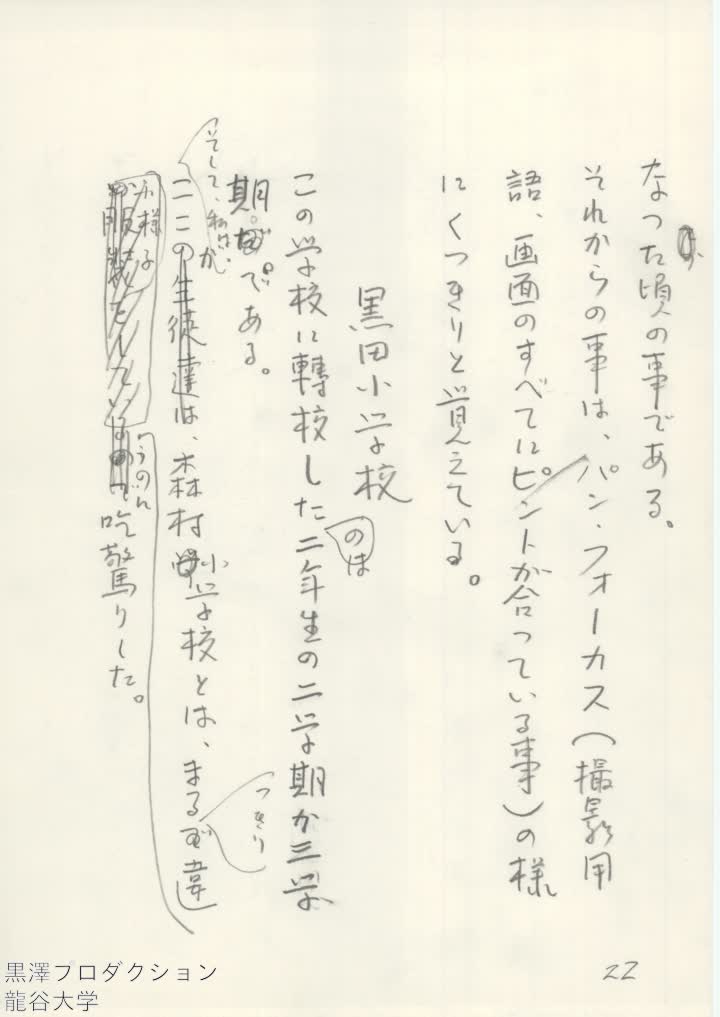 なつた頃の事である。
それからの事は、パン・フォーカス(撮影用
語、画面のすべてにピントが合つている事)の様
にくつきりと覚えている。
黒田小学校
この学校に轉校した
のは
二年生の二学期か三学
期である。
そして、私は、
ここの生徒達は、森村小学校とは、まる
つきり
違
うのに
吃驚りした。
様子
服装をして
22
黒澤プロダクション
龍谷大学